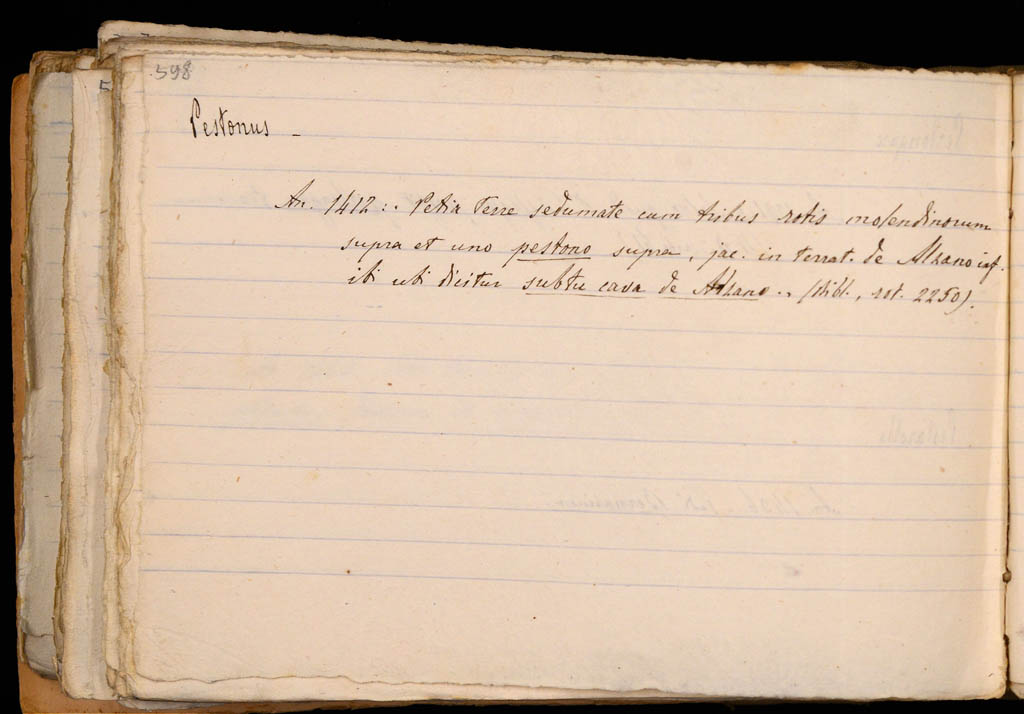 598
Pestonus -
An. 1412 :. Petia terre sedumate cum tribus rotis molendinorum
supra et uno pestono supra, jac. in territ. de Alzano inf.
ibi ubi dicitur subtu cava de Alzano .. (Bibl., rot. 2250).